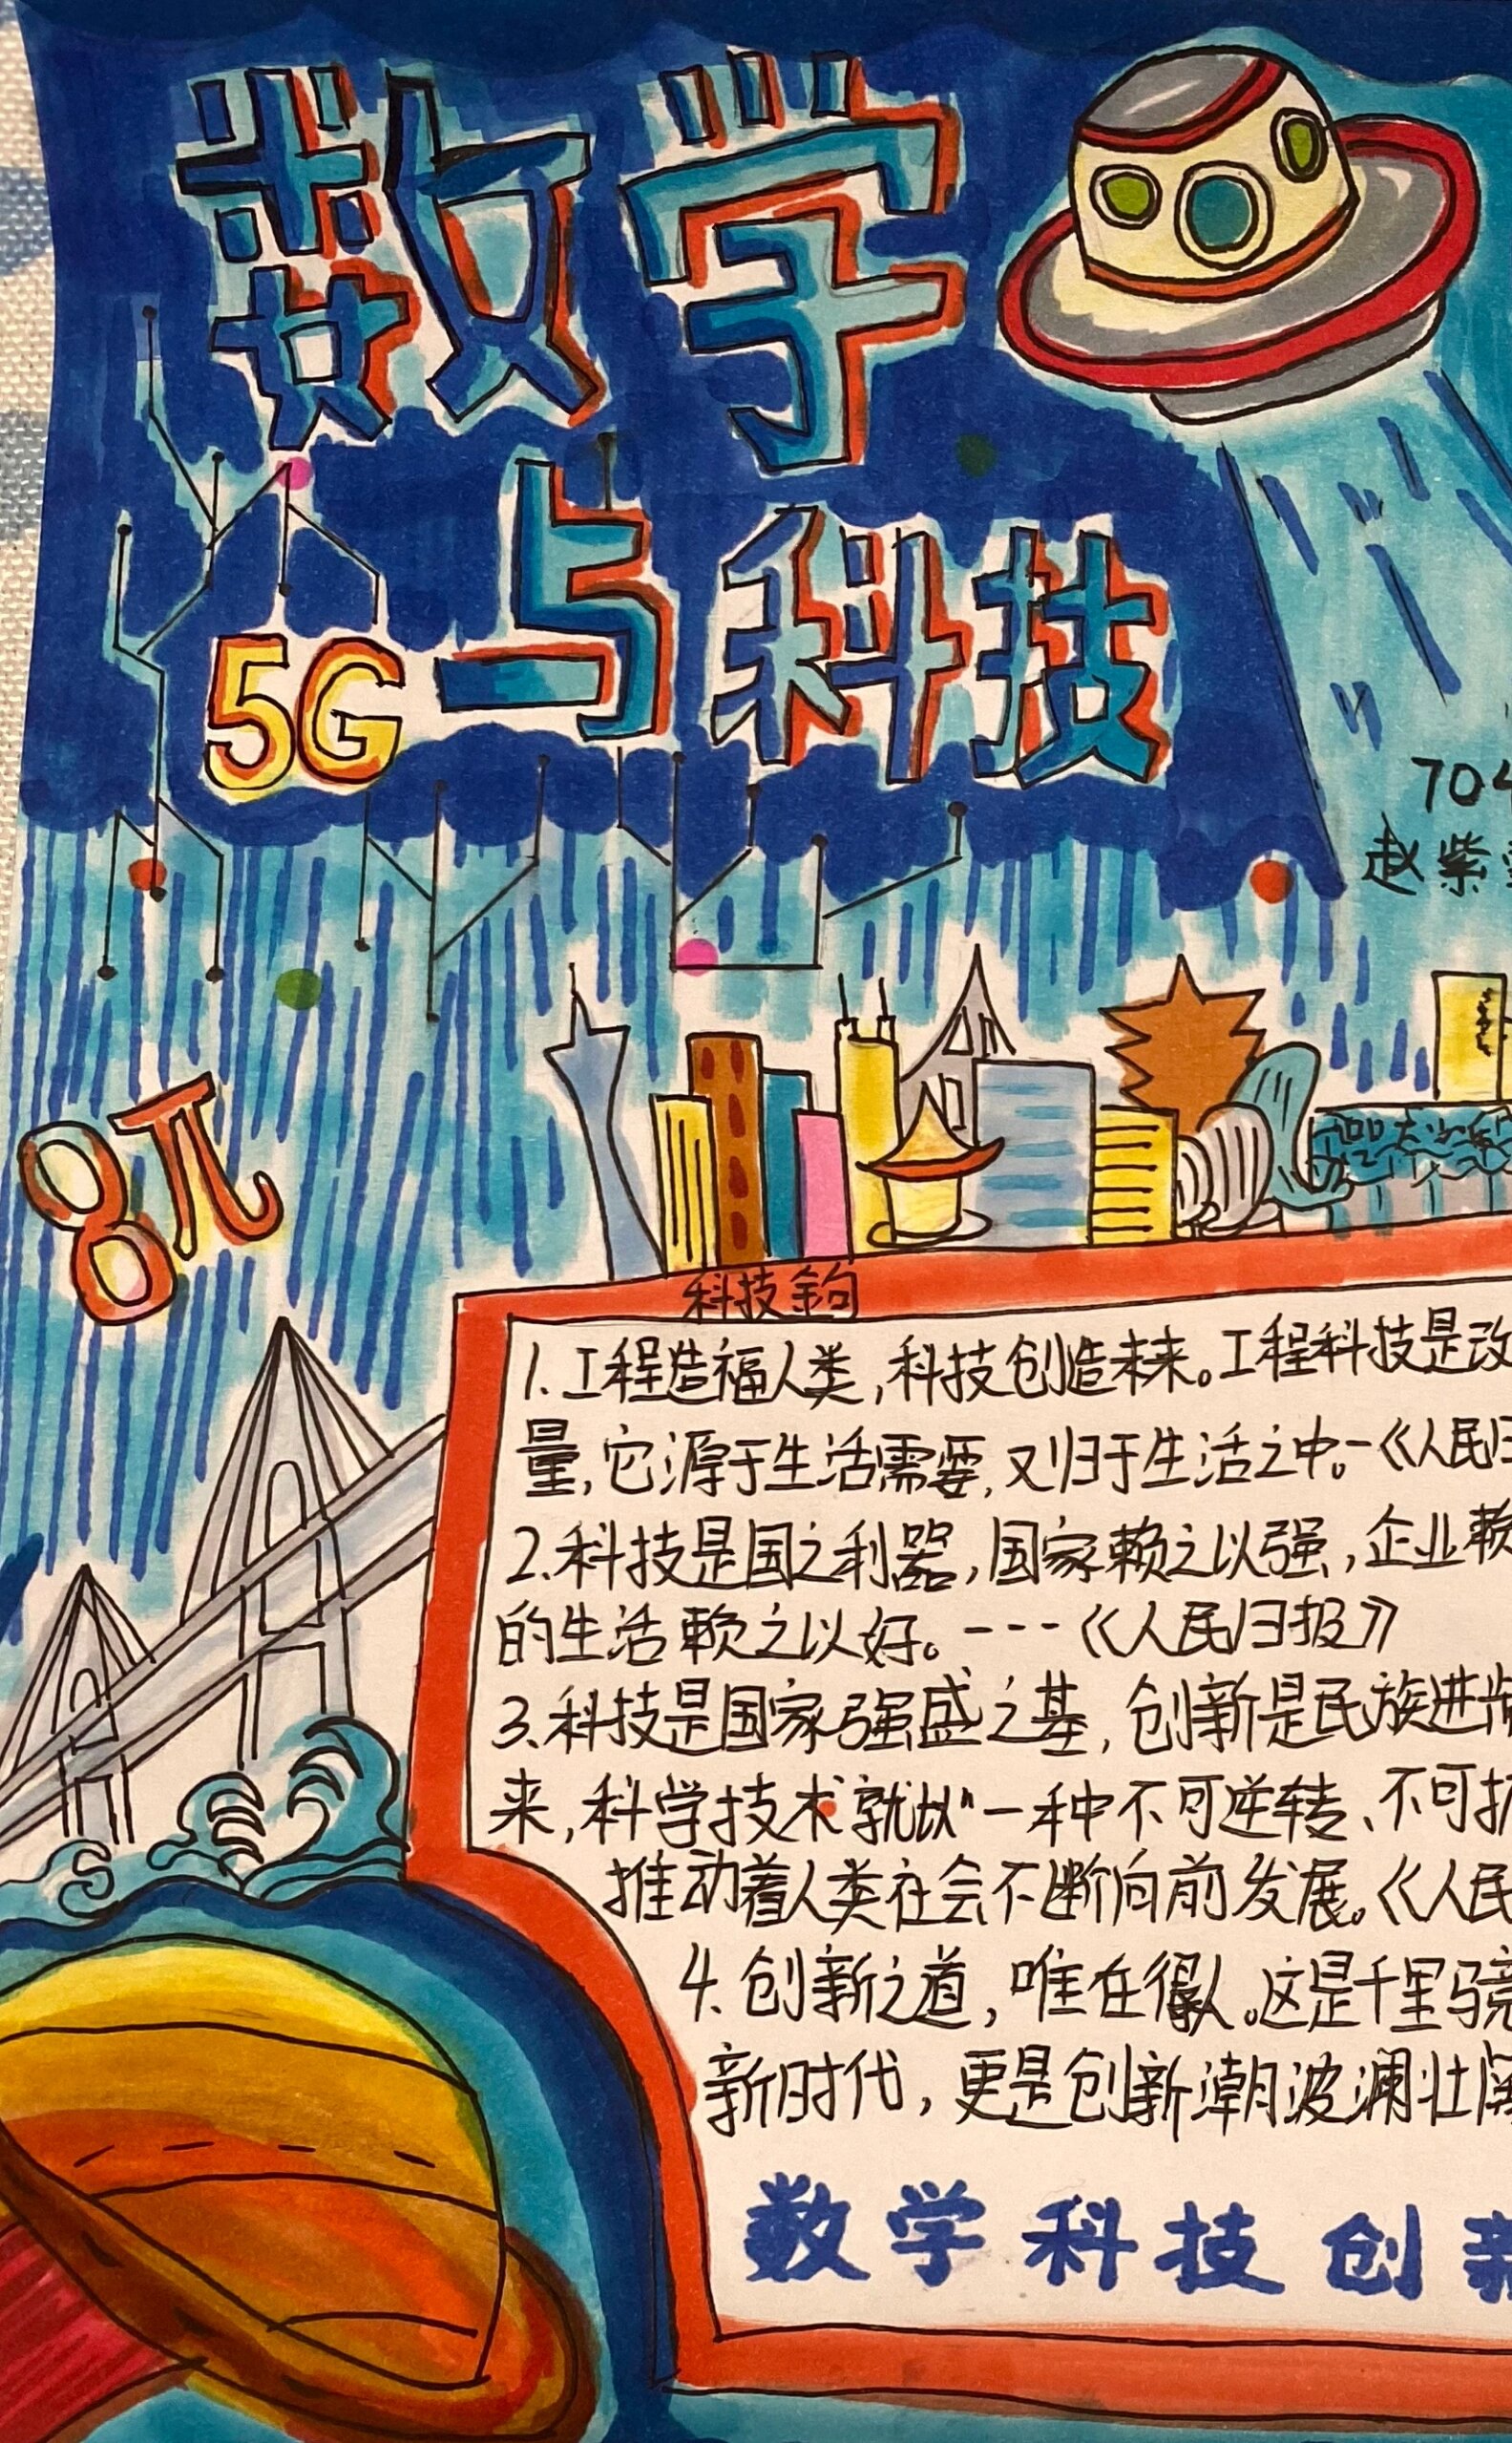 数学
与科技
5G
704
赵紫
8π
科技金句
1.工程造福人类,科技创造未来。工程科技是改
量,它源于生活需要,又归于生活之中。-《人民日
2.科技是国之利器,国家赖之以强,企业赖
的生活赖之以好。---《人民日报》
3.科技是国家强盛之基,创新是民族进步
来,科学技术就以"一种不可逆转、不可抗
推动着人类社会不断向前发展。《人民
4.创新之道,唯在得人。这是千里骏
新时代,更是创新潮波澜壮阔
数学科技创新